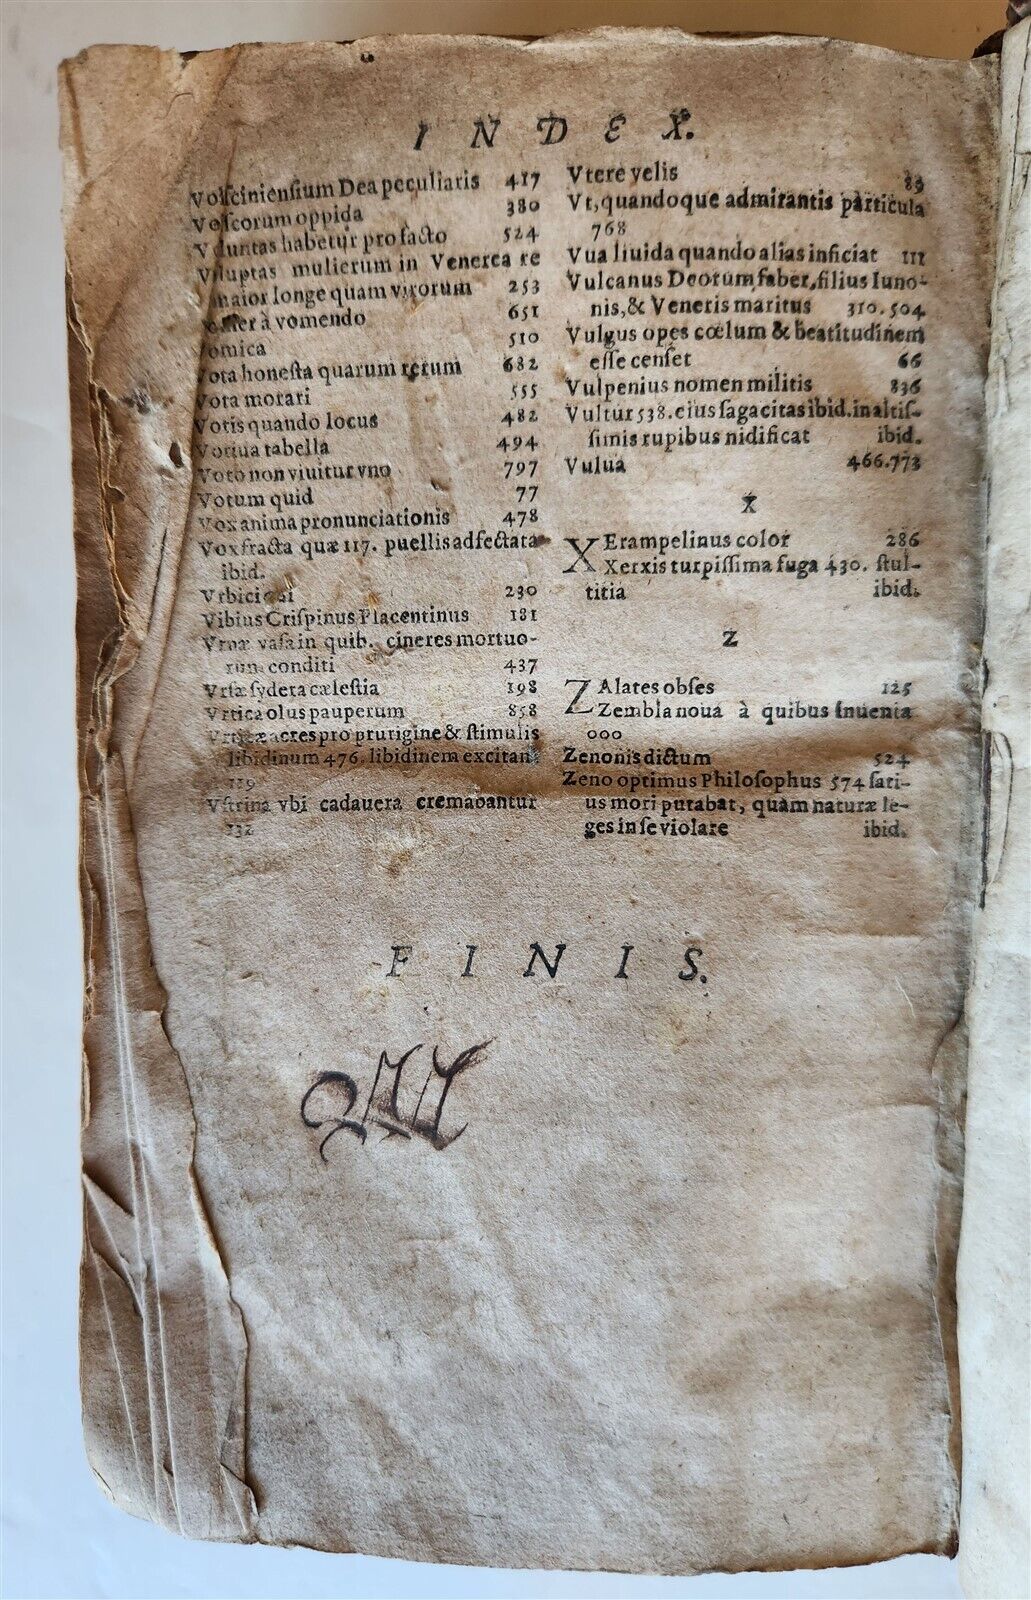 INDEX.
Volciniensium Dea peculiaris 417
Volscorum oppida 380
Voluntas habetur pro facto 524
Voluptas mulierum in Venerea re
maior longe quam virorum 253
Vomer à vomendo 651
Vomica 510
Vota honesta quarum rerum 682
Vota morari 555
Votis quando locus 482
Votiua tabella 494
Voto non viuitur vno 797
Votum quid 77
Vox anima pronunciationis 478
Vox fracta quæ 117. puellis adfectata
ibid.
Vrbici 230
Vibius Crispinus Placentinus 181
Vrnæ vasa in quib. cineres mortuo-
rum conditi 437
Vrsæ sydera cælestia 198
Vrtica olus pauperum 858
Vrticæ acres pro prurigine & stimulis
libidinum 476. libidinem excitant
719
Vstrina vbi cadauera cremabantur
132
Vtere velis 83
Vt, quandoque admirantis particula
768
Vua liuida quando alias inficiat 111
Vulcanus Deorum faber, filius Iuno-
nis, & Veneris maritus 310. 504
Vulgus opes cœlum & beatitudinem
esse censet 66
Vulpenius nomen militis 836
Vultur 538. eius sagacitas ibid. in altis-
simis rupibus nidificat ibid.
Vulua 466.773
X
XErampelinus color 286
Xerxis turpissima fuga 430. stul-
titia ibid.
Z
ZAlates obses 125
Zembla noua à quibus inuenta
000
Zenonis dictum 524
Zeno optimus Philosophus 574 sati-
us mori putabat, quàm naturæ le-
ges in se violare ibid.
FINIS.